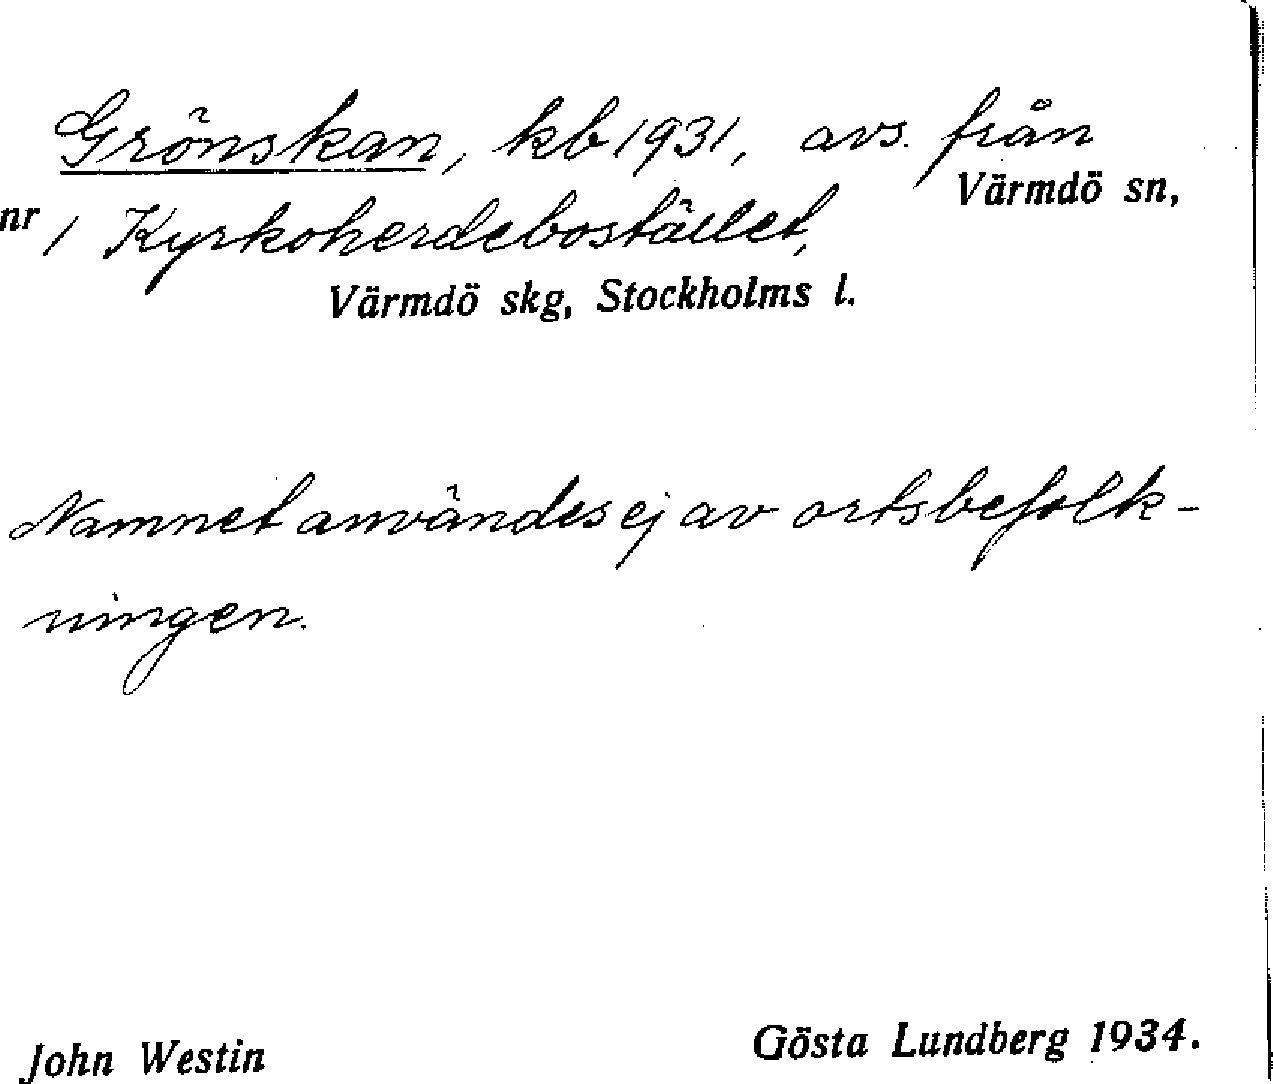 Grönskan, kb 1931, avs. från
Värmdö sn,
nr 1 Kyrkoherdebostället,
Värmdö skg, Stockholms l.
Namnet användes ej av ortsbefolk-
ningen.
John Westin
Gösta Lundberg 1934.